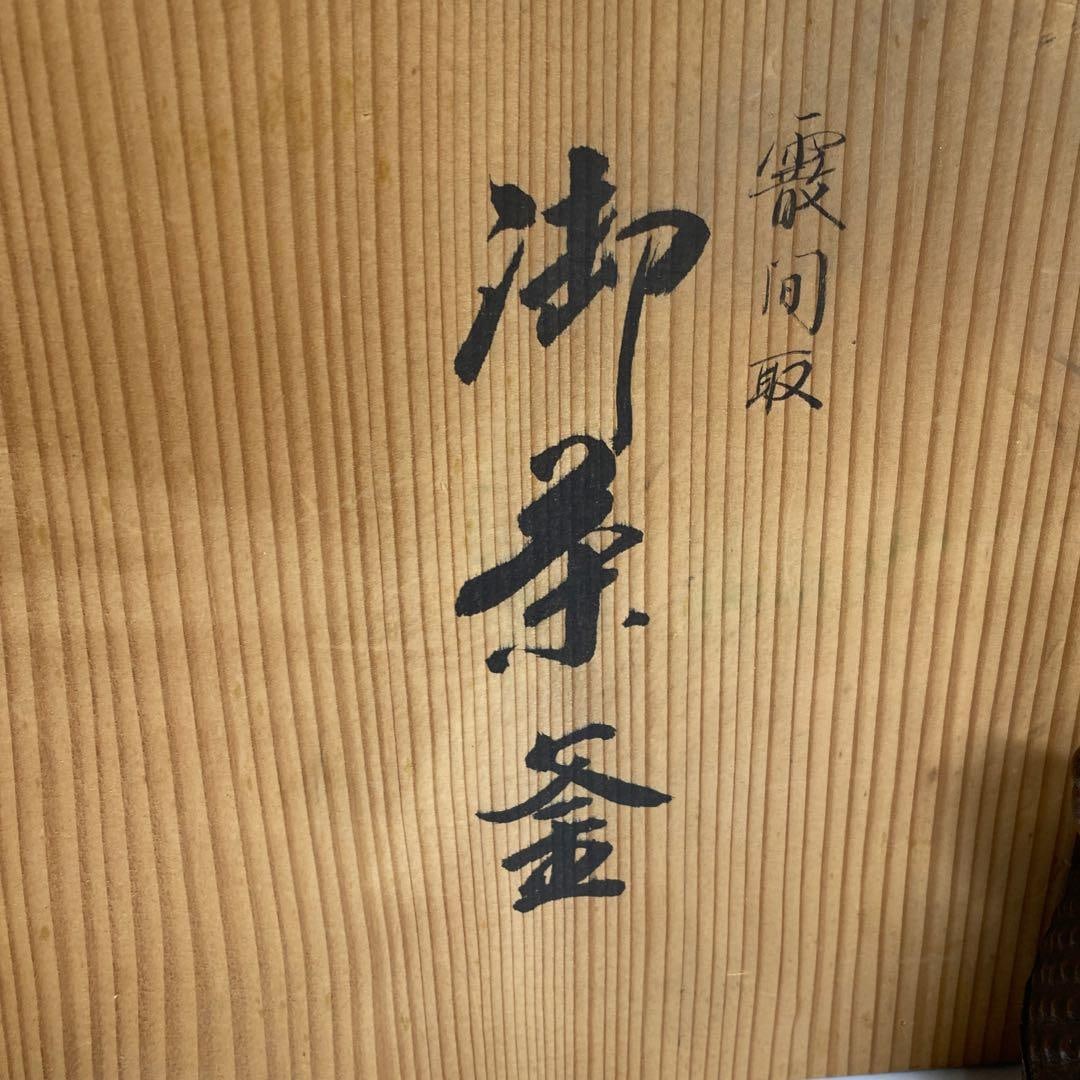 霰間取
御茶釜